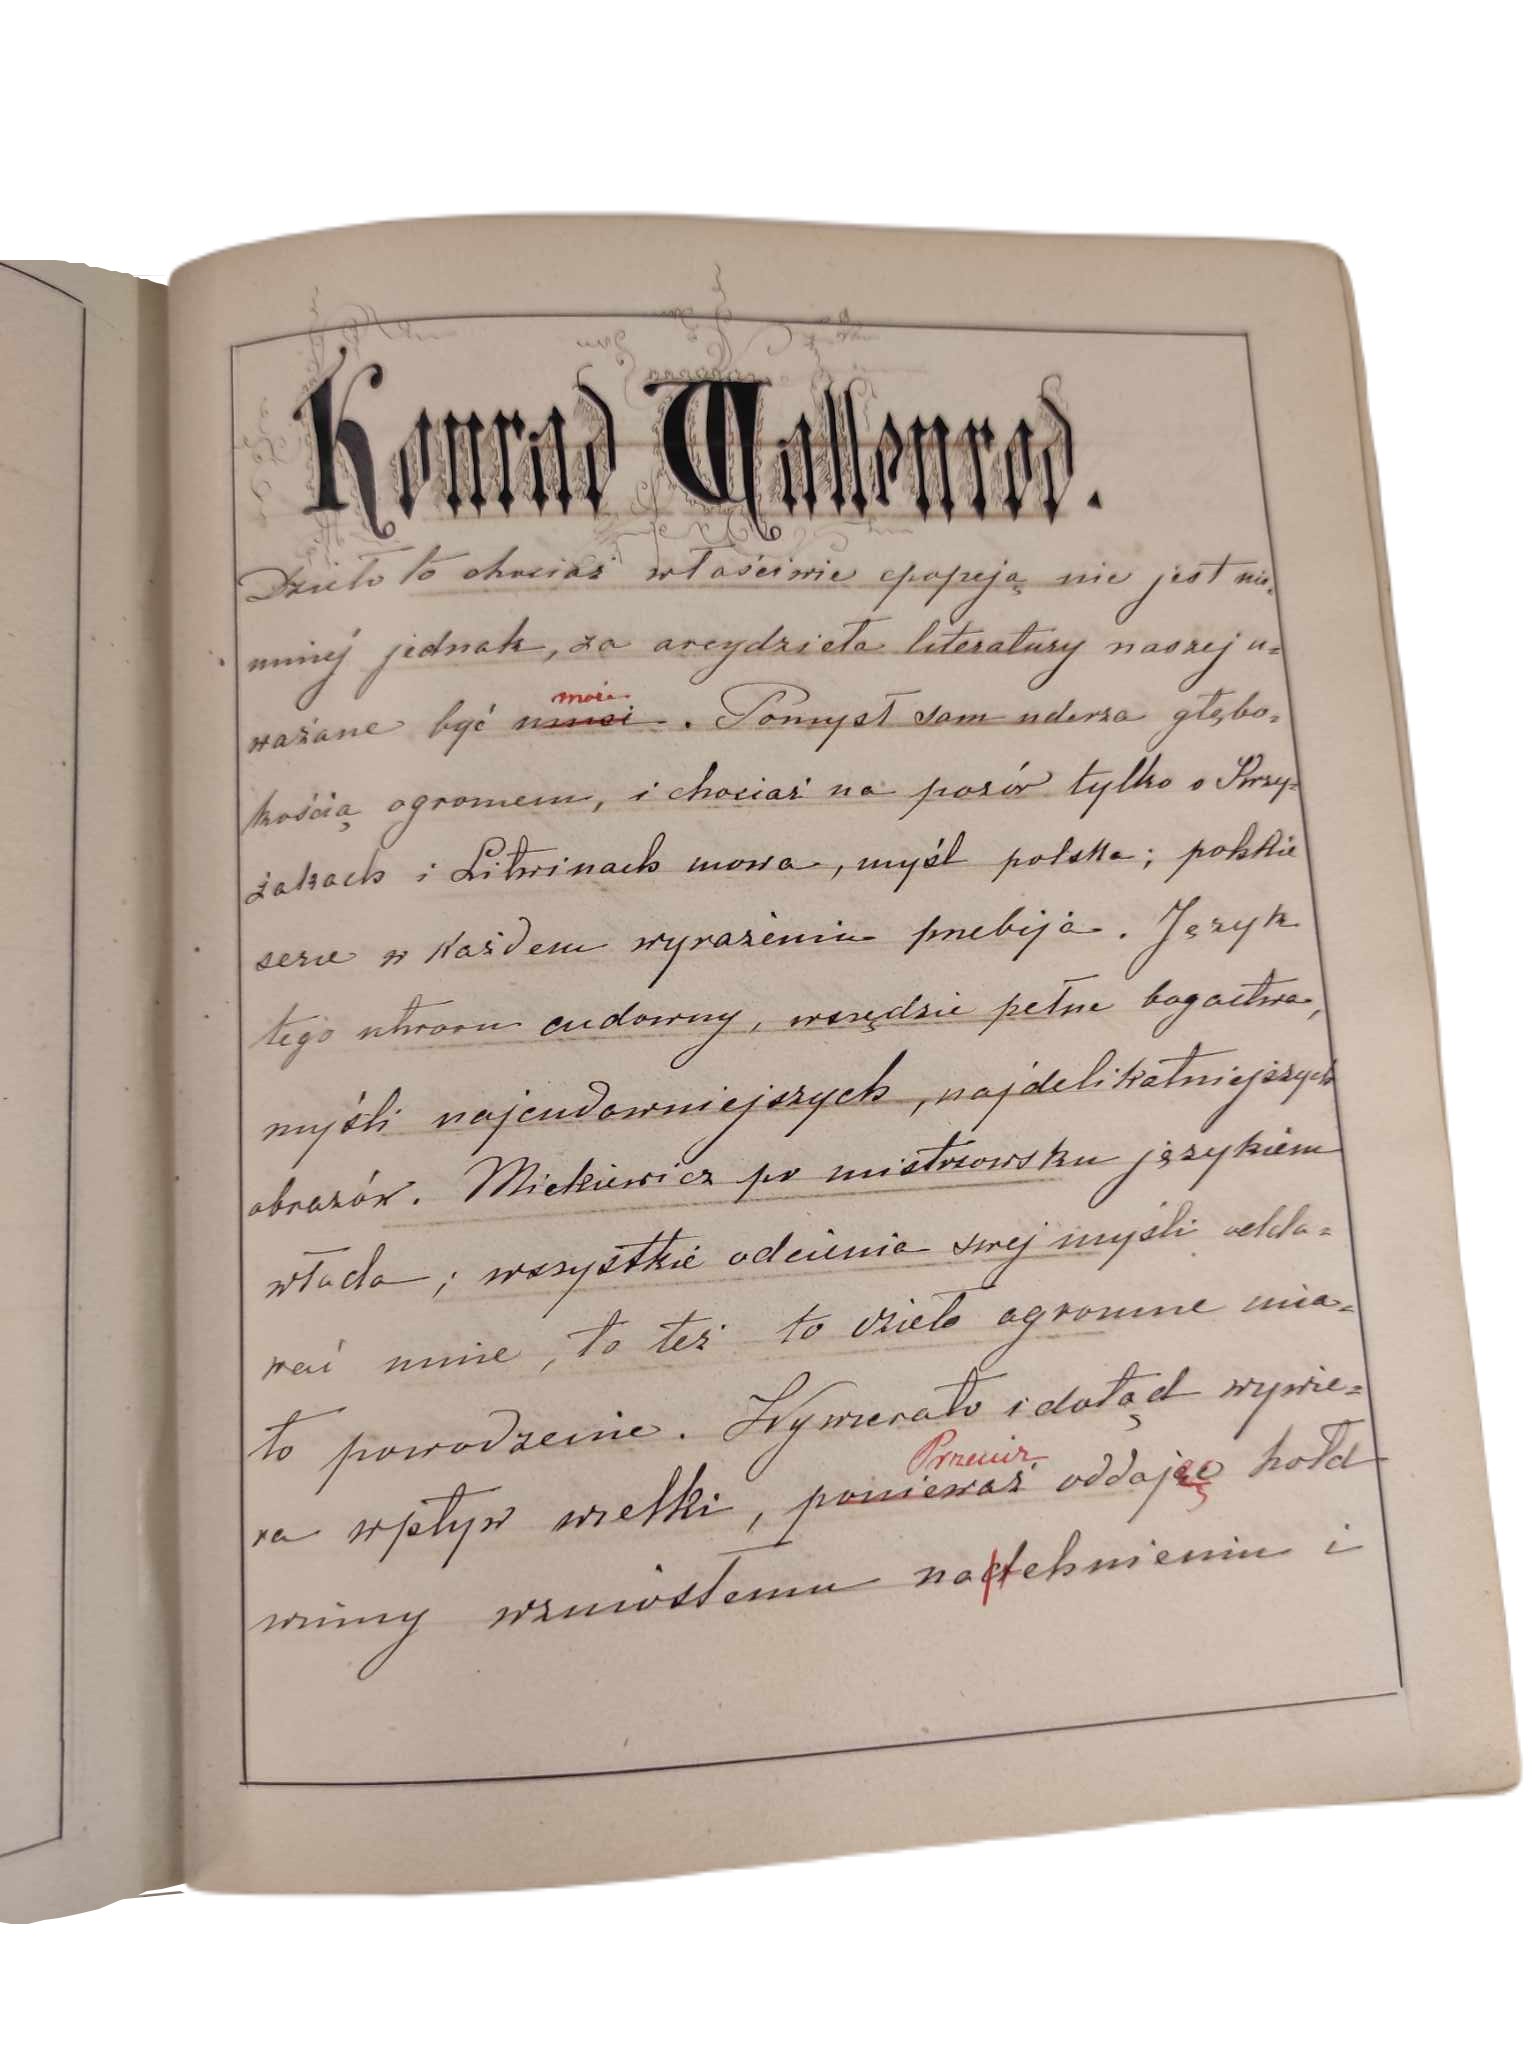 Konrad Wallenrod.
Dzieło to chociaż właściwie epopeją nie jest nie=
mniéj jednak, za arcydzieła literatury naszej u=
ważane być musi może. Pomysł sam uderza głębo=
kością ogromem, i chociaż na pozór tylko o Krzy=
żakach i Litwinach mowa, myśl polska; polskie
serce w każdem wyrażeniu przebija. Język
tego utworu cudowny, wszędzie pełne bogactwa,
myśli najcudowniejszych, najdelikatniejszych
obrazów. Mickiewicz po mistrzowsku językiem
włada; wszystkie odcienia swej myśli odda=
wać umie, to też to dzieło ogromne mia=
ło powodzenie. Wywierało i dotąd wywie=
ra wpływ wielki, ponieważ Przeciż oddając hołd
winny wzniosłemu nadchnieniu i